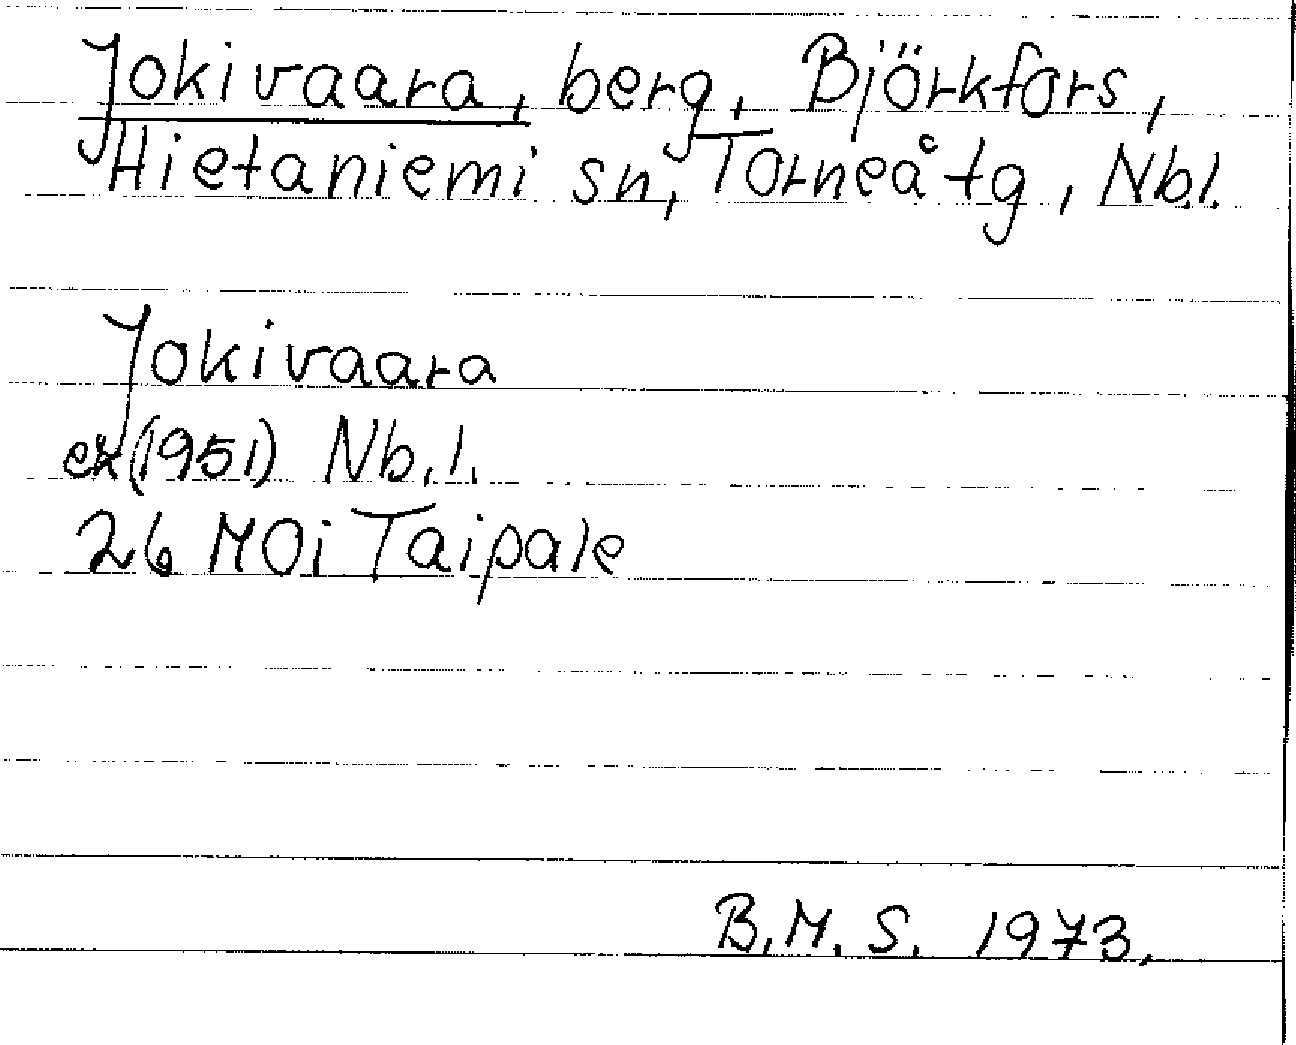 Jokivaara, berg, Björkfors,
Hietaniemi sn, Torneå tg, Nb.l.
Jokivaara
ek (1951) Nb.l.
26 MOi Taipale
B.M.S. 1973.